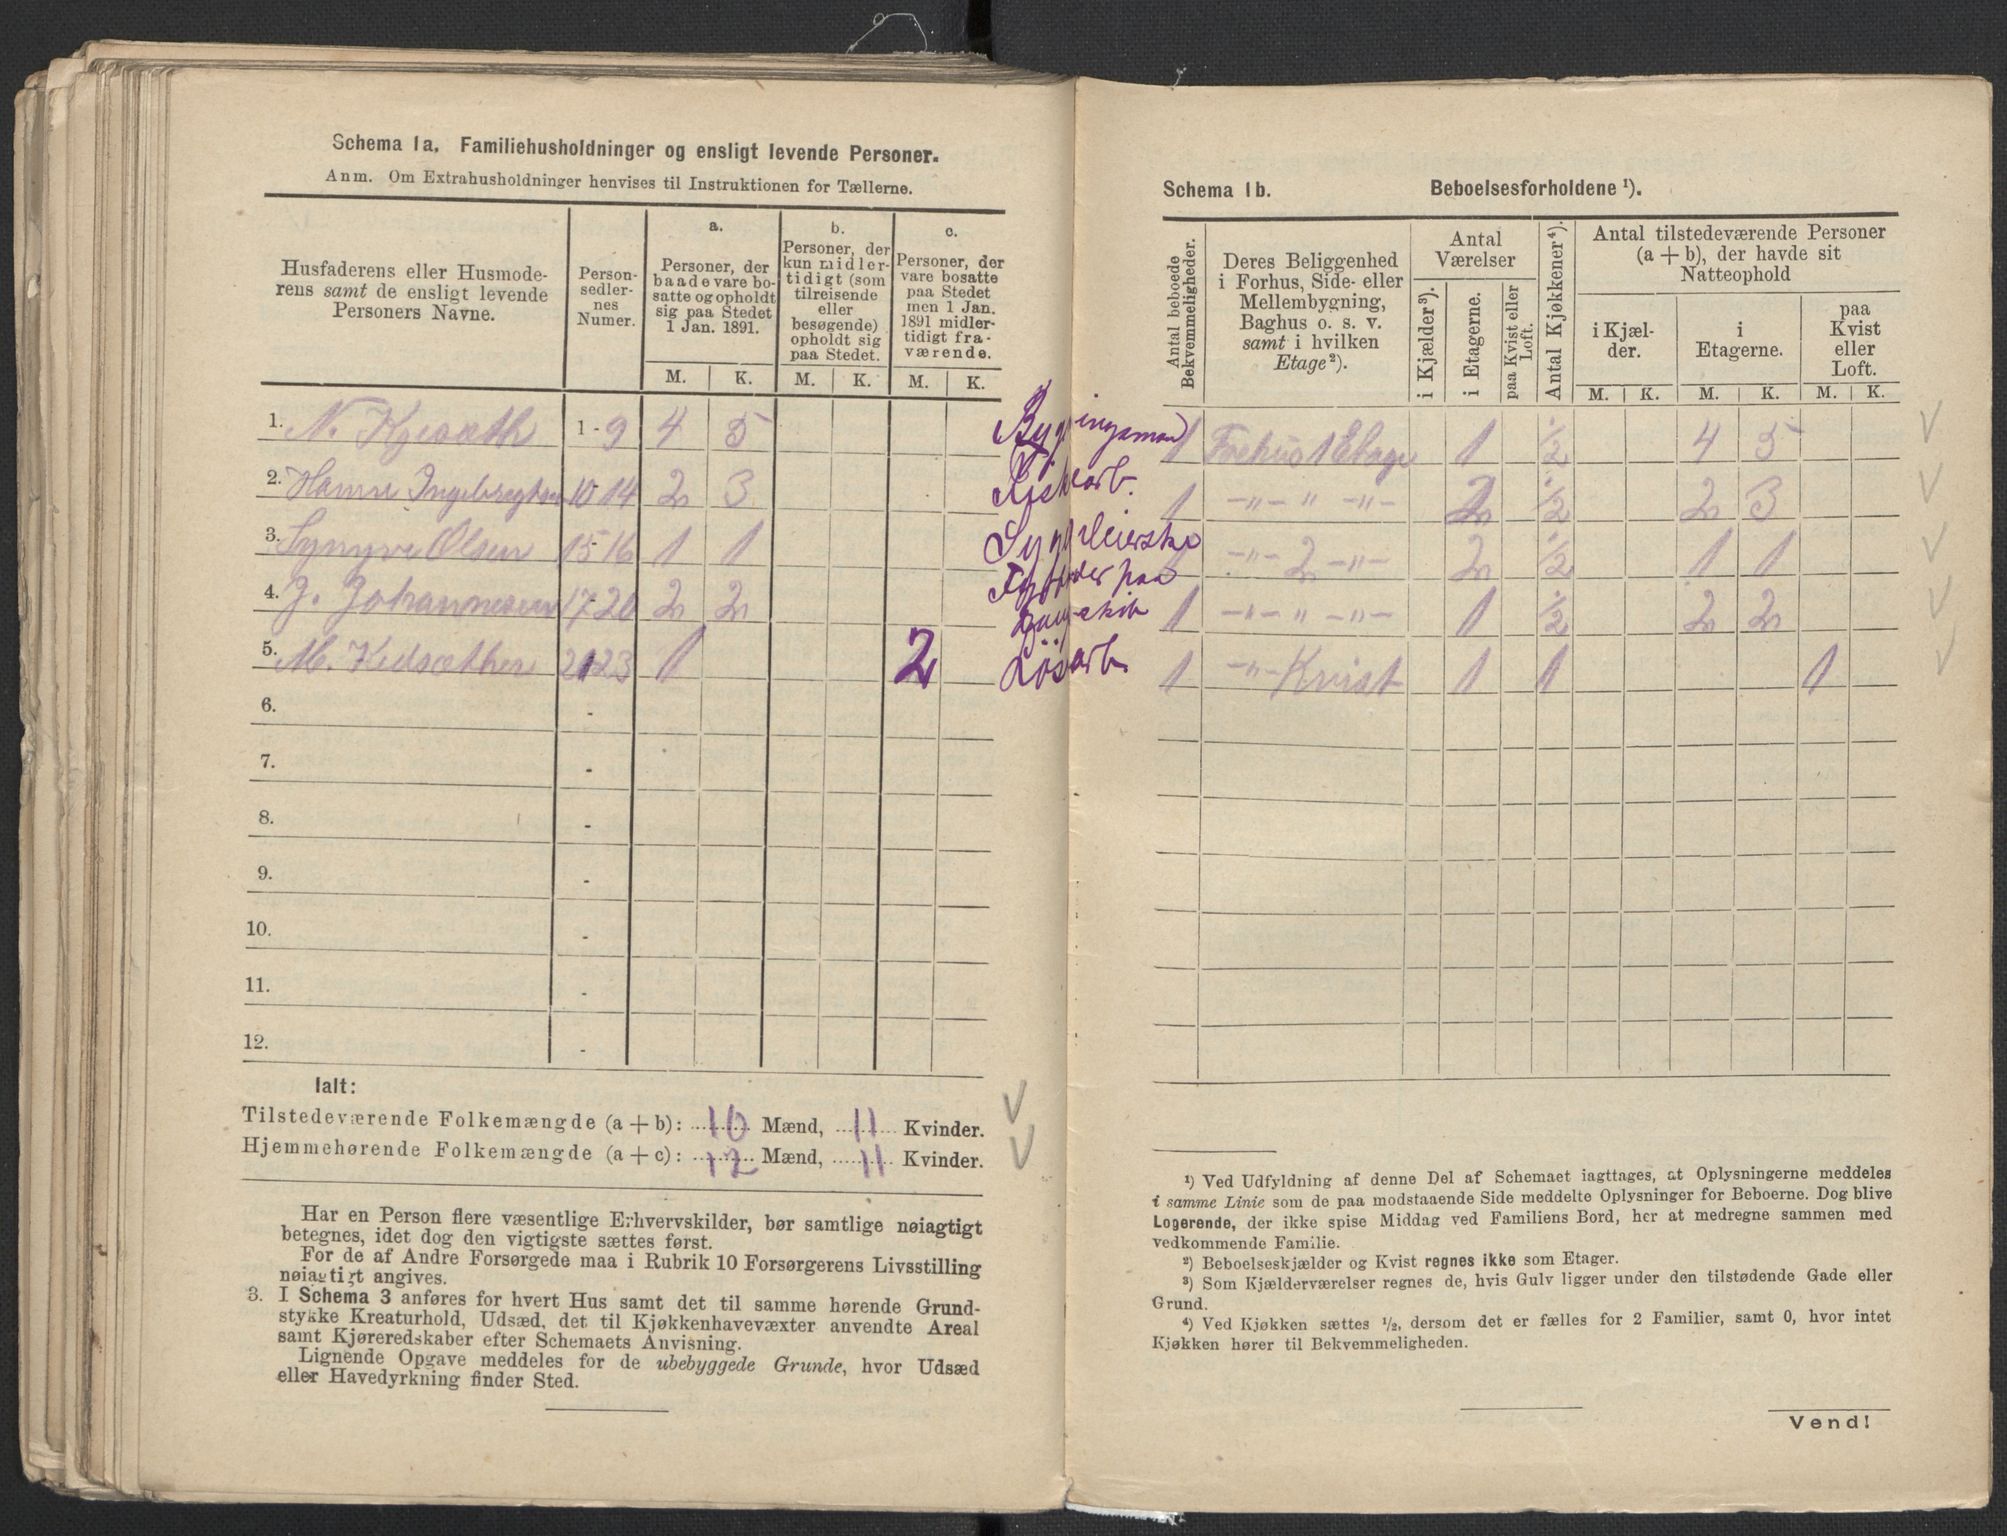 Schema 1a. Familiehusholdninger og ensligt levende Personer.
Anm. Om Extrahusholdninger henvises til Instruktionen for Tællerne.
Husfaderens eller Husmode-
rens samt de ensligt levende
Personers Navne.
Person-
sedler-
nes
Numer.
a.
Personer, der
baade vare bo-
satte og opholdt
sig paa Stedet
1 Jan. 1891.
b.
Personer, der
kun midler-
tidigt (som
tilreisende
eller
besøgende)
opholdt sig
paa Stedet.
c.
Personer, der
vare bosatte
paa Stedet
men 1 Jan.
1891 midler-
tidigt fra-
værende.
M. K. M. K. M. K.
1. 1-9 4 5
2. Hanne 10 14 2 3
3. Olsen 15 16 1 1
4. J. Johannesen 17-20 2 2
5. M. 21 23 1 2
6. -
7. -
8. -
9. -
10. -
11. -
12. -
Ialt:
Tilstedeværende Folkemængde (a + b): 10 Mænd, 11 Kvinder.
Hjemmehørende Folkemængde (a + c): 12 Mænd, 11 Kvinder.
Har en Person flere væsentlige Erhvervskilder, bør samtlige nøiagtigt
betegnes, idet dog den vigtigste sættes først.
For de af Andre Forsørgede maa i Rubrik 10 Forsørgerens Livsstilling
nøiagtigt angives.
3. I Schema 3 anføres for hvert Hus samt det til samme hørende Grund-
stykke Kreaturhold, Udsæd, det til Kjøkkenhavevæxter anvendte Areal
samt Kjøreredskaber efter Schemaets Anvisning.
Lignende Opgave meddeles for de ubebyggede Grunde, hvor Udsæd
eller Havedyrkning finder Sted.
Schema 1b. Beboelsesforholdene ¹).
Antal beboede
Bekvemmeligheder.
Deres Beliggenhed
i Forhus, Side- eller
Mellembygning,
Baghus o. s. v.
samt i hvilken
Etage²).
Antal
Værelser
i Kjælder³).
i Etagerne.
paa Kvist eller
Loft.
Antal Kjøkkener⁴).
Antal tilstedeværende Personer
(a + b), der havde sit
Natteophold
i Kjæl-
der.
i
Etagerne.
paa
Kvist
eller
Loft.
M. K. M. K. M. K.
1 Forhus 1 Etage 1 ½ 4 5
1 -„- „ -„- 2 ½ 2 3
1 -„- 2 -„- 2 ½ 1 1
1 -„- „ -„- 1 ½ 2 2
Løsarb. 1 -„- Kvist 1 1 1
¹) Ved Udfyldning af denne Del af Schemaet iagttages, at Oplysningerne meddeles
i samme Linie som de paa modstaaende Side meddelte Oplysninger for Beboerne. Dog blive
Logerende, der ikke spise Middag ved Familiens Bord, her at medregne sammen med
vedkommende Familie.
²) Beboelseskjælder og Kvist regnes ikke som Etager.
³) Som Kjælderværelser regnes de, hvis Gulv ligger under den tilstødende Gade eller
Grund.
⁴) Ved Kjøkken sættes ½, dersom det er fælles for 2 Familier, samt 0, hvor intet
Kjøkken hører til Bekvemmeligheden.
Vend!